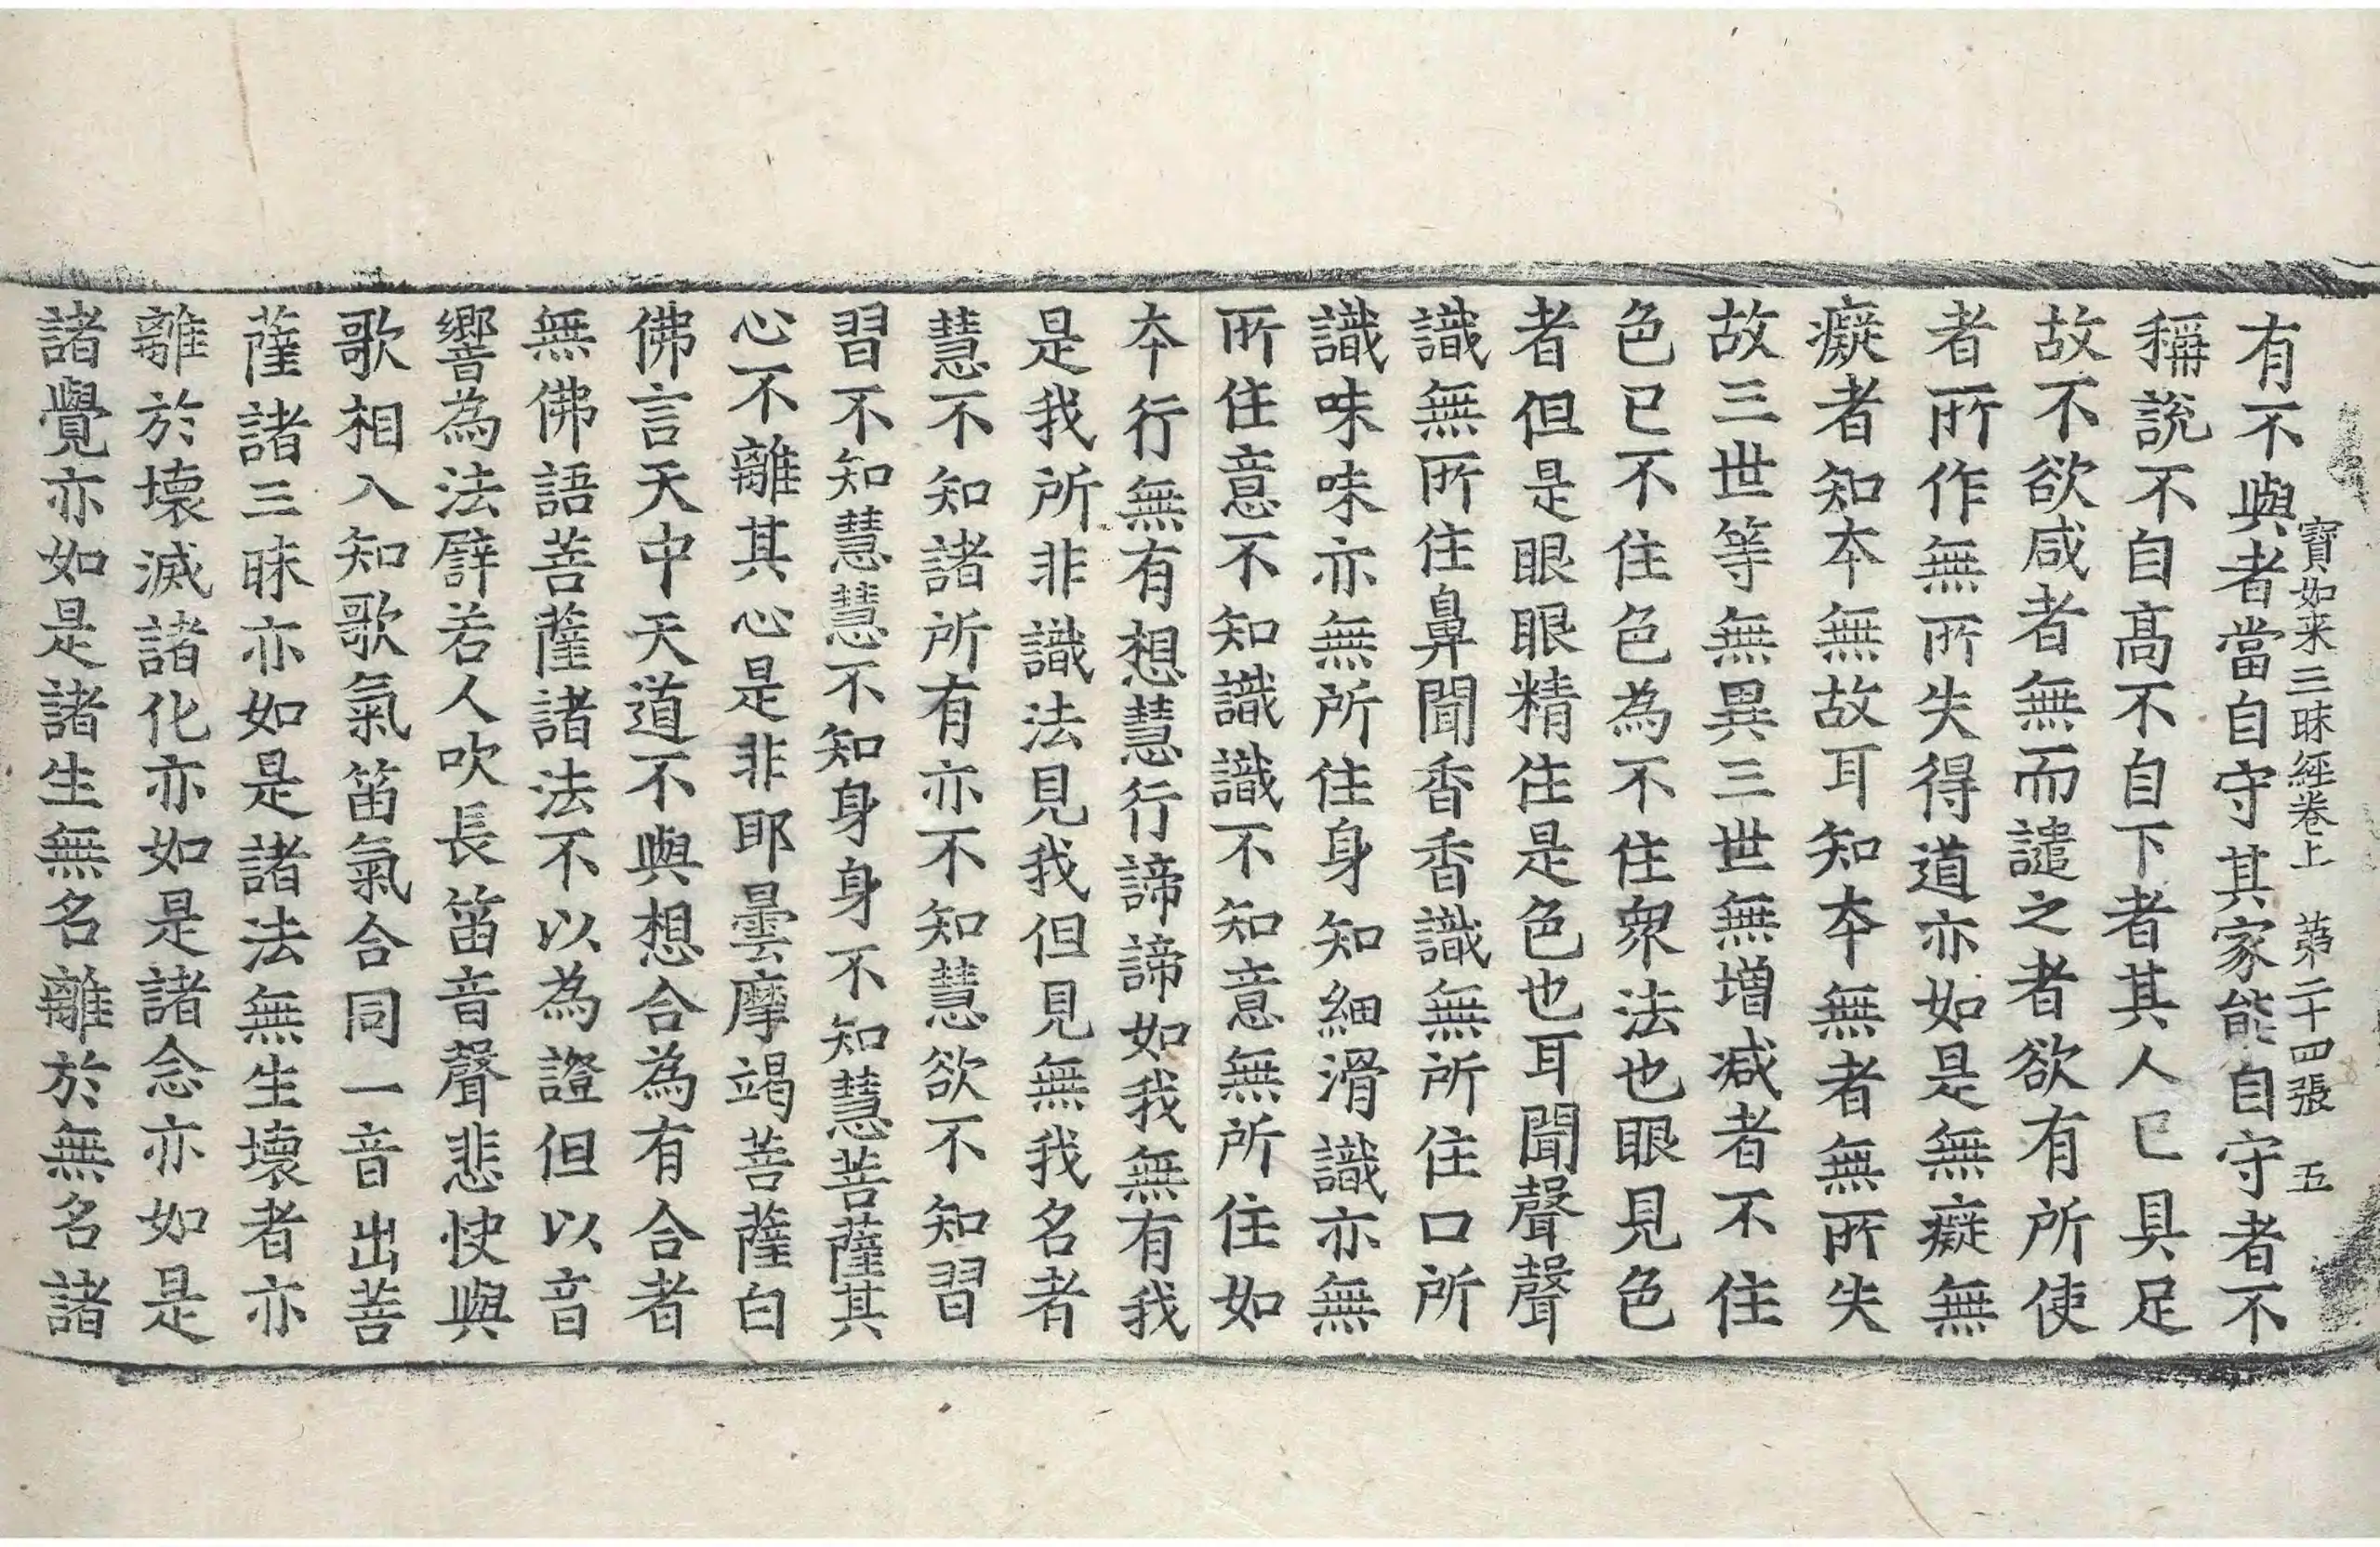 寶如来三昧經卷上　第二十四張　五
有不與者當自守其家能自守者不
稱說不自髙不自下者其人已具足
故不欲咸者無而譴之者欲有所使
者所作無所失得道亦如是無癡無
癡者知本無故耳知本無者無所失
故三世等無異三世無增减者不住
色已不住色為不住衆法也眼見色
者但是眼眼精住是色也耳聞聲聲
識無所住鼻聞香香識無所住口所
識味味亦無所住身知細滑識亦無
所住意不知識識不知意無所住如
本行無有想慧行諦諦如我無有我
是我所非識法見我但見無我名者
慧不知諸所有亦不知慧欲不知習
習不知慧慧不知身身不知慧菩薩其
心不離其心是非耶曇摩竭菩薩白
佛言天中天道不與想合為有合者
無佛語菩薩諸法不以為證但以音
響為法譬若人吹長笛音聲悲快與
歌相入知歌氣笛氣合同一音出菩
薩諸三昧亦如是諸法無生壞者亦
離於壞滅諸化亦如是諸念亦如是
諸覺亦如是諸生無名離於無名諸